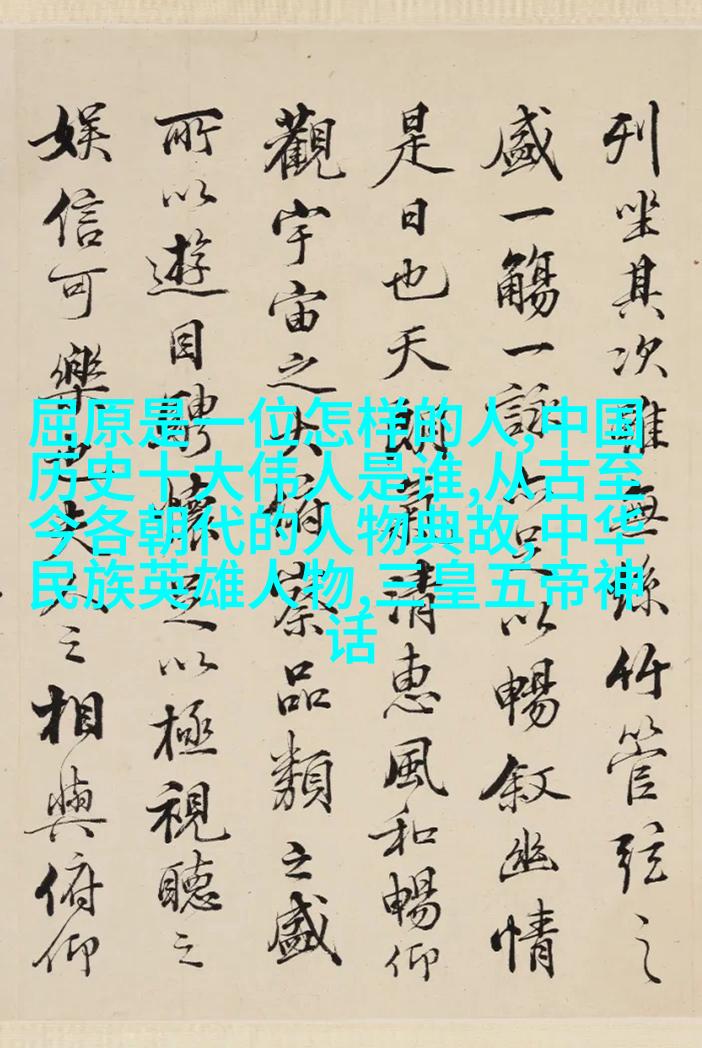 列坐其次雖無絲竹管弦之
盛一觴一詠亦足以暢敘幽情
是日也天朗氣清惠風和暢仰
觀宇宙之大俯察品類之盛
所以遊目騁懷足以極視聽之
娛信可樂也夫人之相與俯仰
屈原是一位怎样的人,中国
历史十大伟人是谁,从古至
今各朝代的人物典故,中华
民族英雄人物,三皇五帝神
话